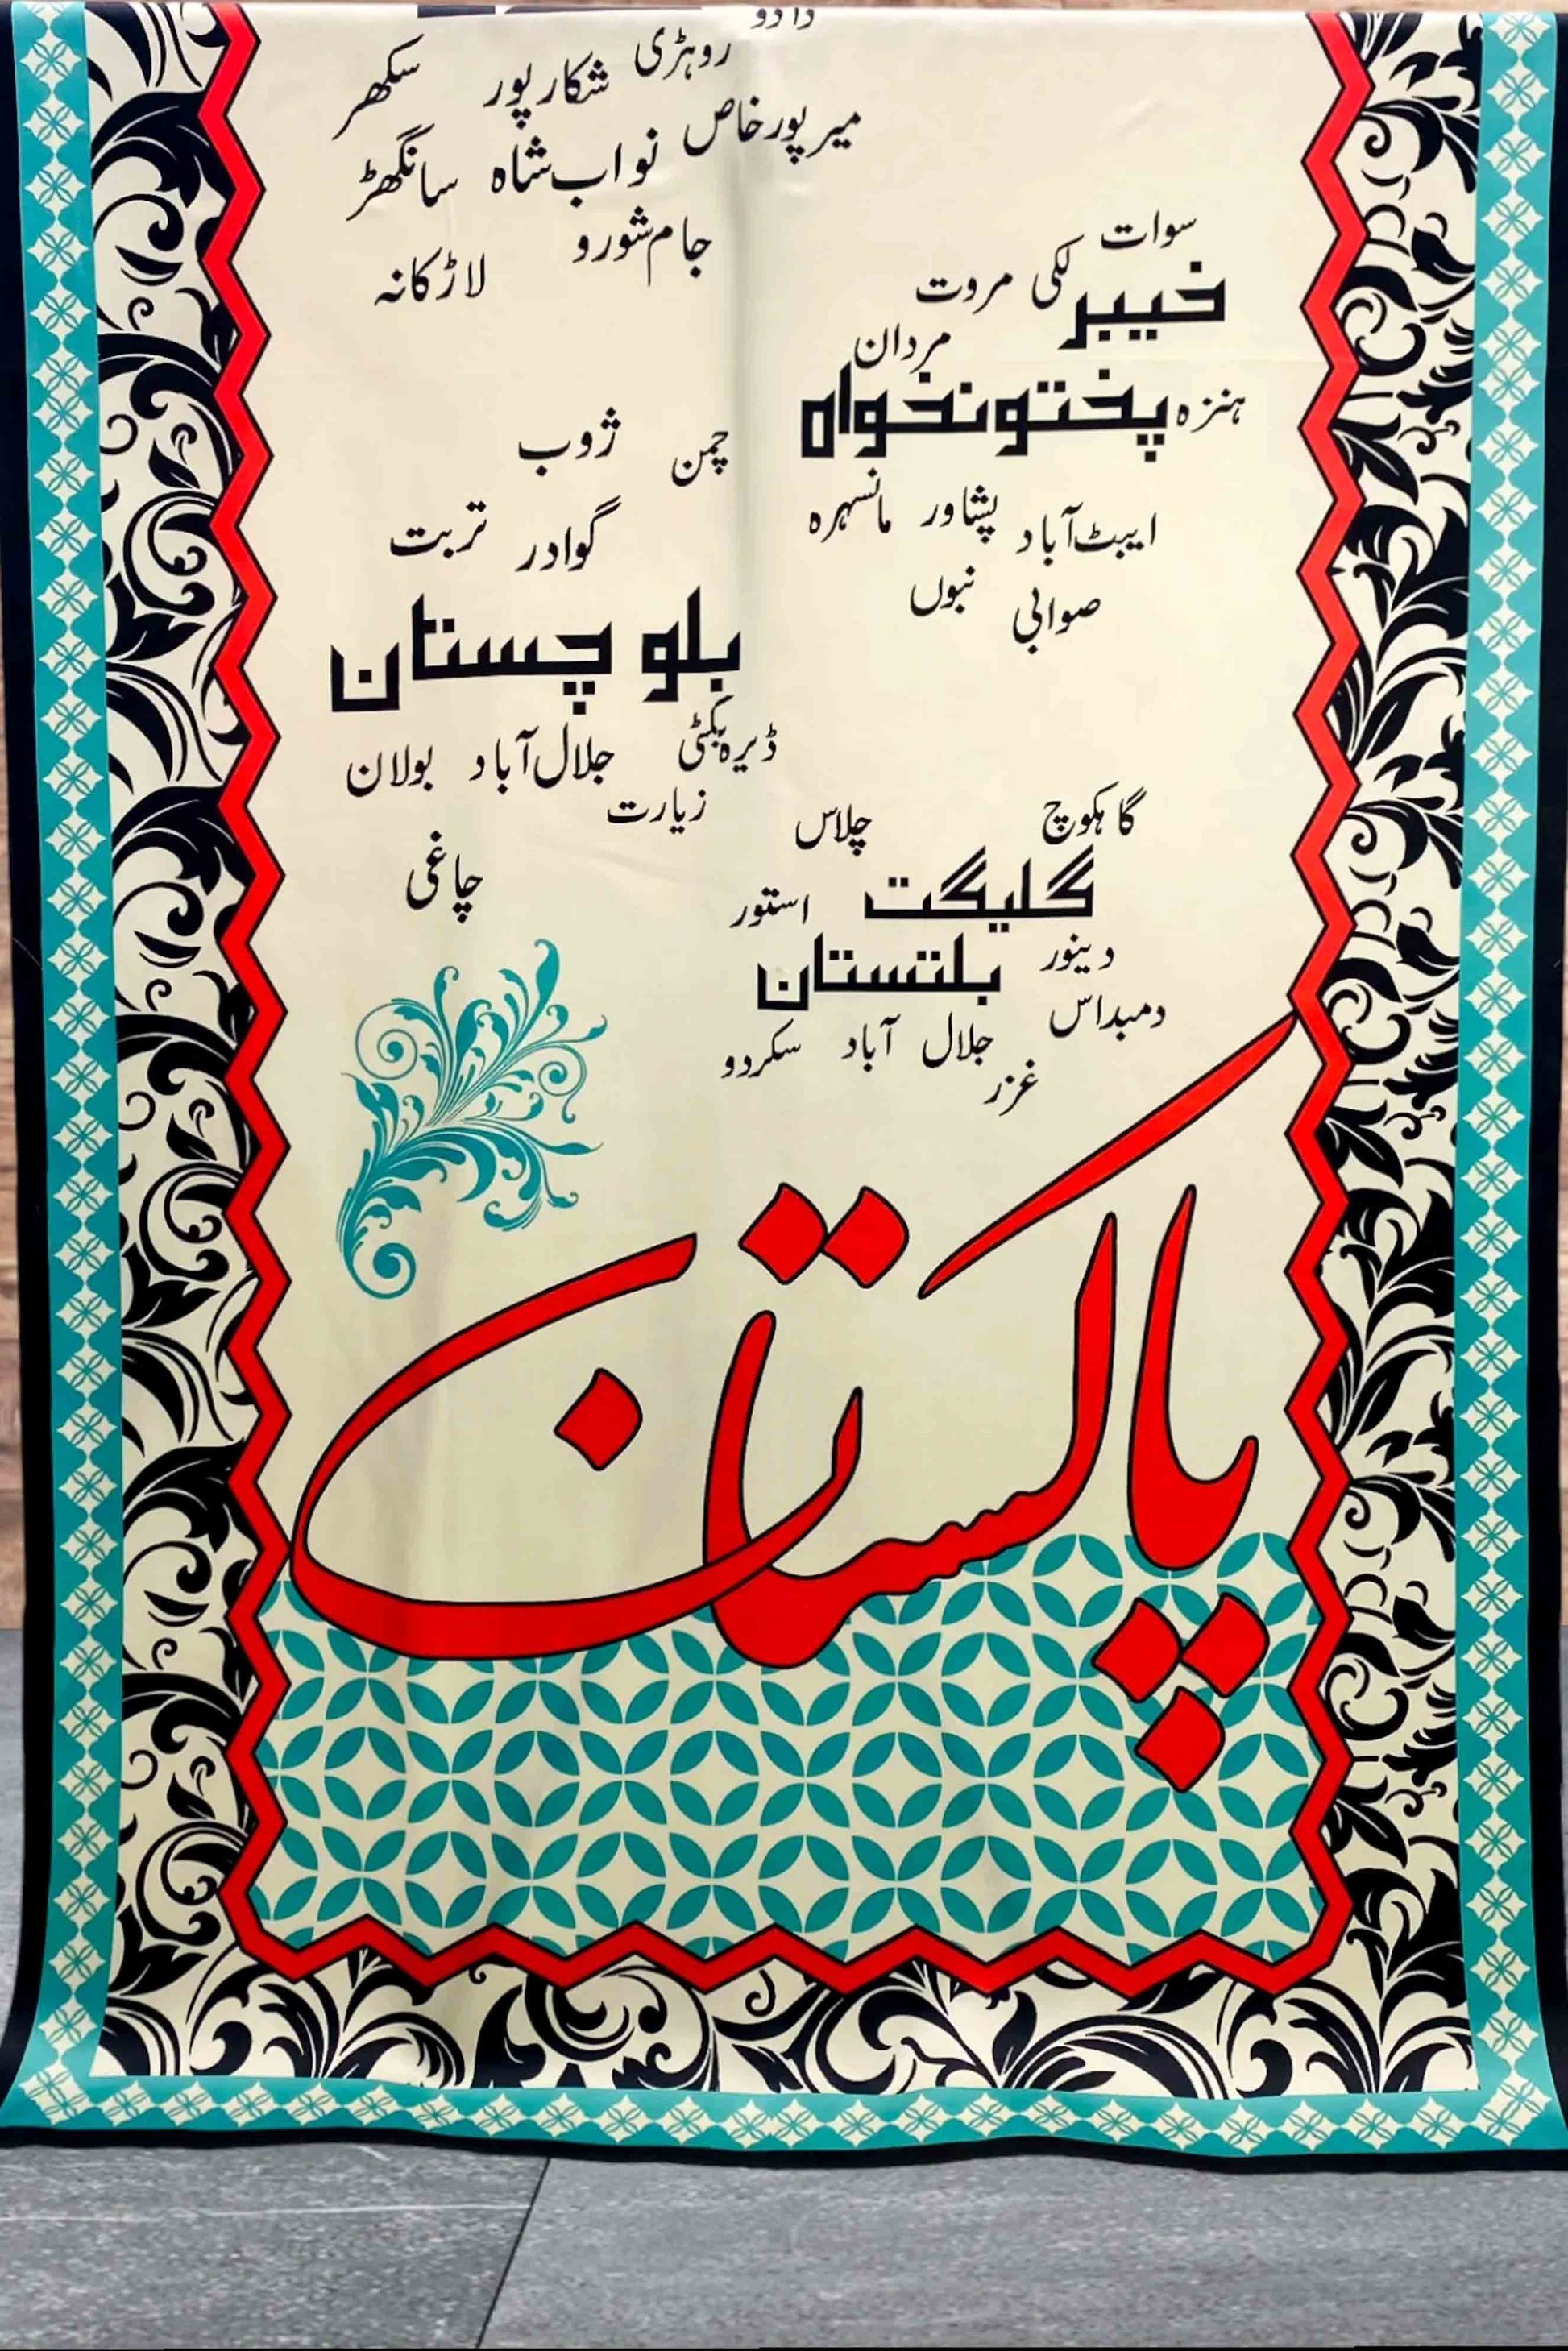 دادو
روہڑی
شکارپور
سکھر
میرپورخاص
نواب شاہ
سانگھڑ
جام شورو
لاڑکانہ
سوات
لکی مروت
خیبر
مردان
پختونخواہ
ہنزہ
ایبٹ آباد
پشاور
مانسہرہ
صوابی
نبوں
ژوب
چمن
گوادر
تربت
بلوچستان
ڈیرہ بگٹی
جلال آباد
بولان
زیارت
چاغی
گاہکوچ
چلاس
گلیگت
استور
بلتستان
دینور
دمبداس
جلال آباد
سکردو
غزر
پاکستان